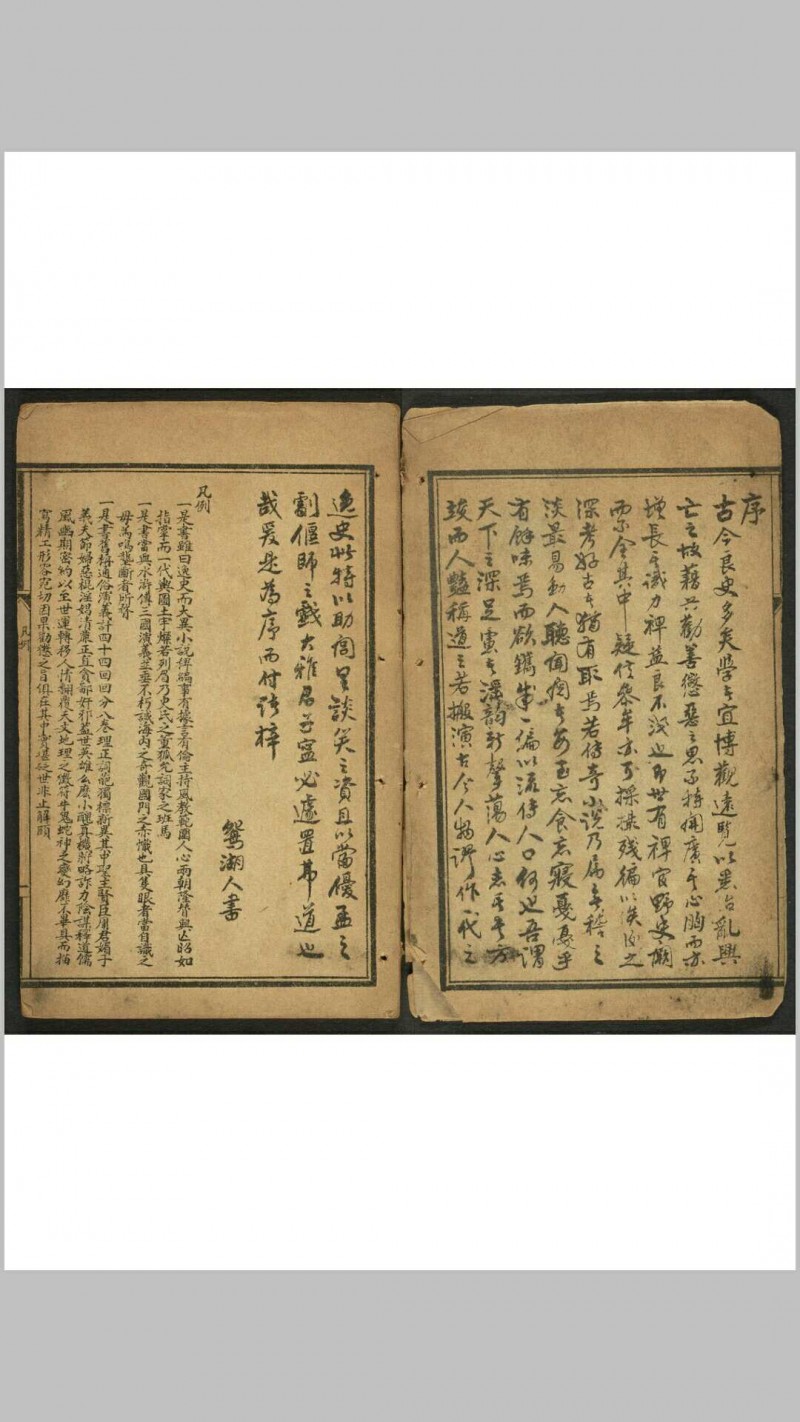 序
古今良史多矣學者宜博觀遠覽以悉治亂興
亡之故藉以勸善懲惡之思而特開廣其心胸而亦
增長其識力裨益良不淺也即世有稗官野史闕
而不全其中疑信參半亦可採撮殘編以俟後之
深考好古者猶有取焉若傳奇小說乃屬無稽之
談最易動人聽聞閱者每至忘食忘寢戛戛乎
有餘味焉而欲鐫成一編以流傳人口何也吾謂
天下之深足寓其深韻新聲蕩人心志
竣而人豔稱道之若搬演古今人物謬作一代之
逸史此特以助閒里談笑之資且以當優孟之
劇偃師之戲大雅君子寧必處置弗道也
哉爰是為序而付諸梓
鴛湖人書
凡例
一是書雖曰逸史而大異小說俾編事有據言有倫主持風教範圍人心兩朝隆替興亡昭如
指掌而一代輿圖土宇燦若列眉乃史氏之董狐允詞家之班馬
一是書當與水滸傳三國演義並垂不朽識海內之奇觀國門之赤幟也具隻眼者當自識之
毋為鳴壟斷者所瞀
一是書舊稱通俗演義計四十四回回分八卷理正詞龐獨標新異其中聖主賢臣庸君媚子
義夫節婦惡棍淫娼清廉正直貪鄙奸邪蓋世英雄么麼小醜真機將略詐力陰謀釋道儒
風幽期密約以至世運轉移人情翻覆天文地理之徵符牛鬼蛇神之變幻靡不畢具而描
寫精工形容宛切因果勸懲之旨俱在其中實堪砭世非止解頤
凡例